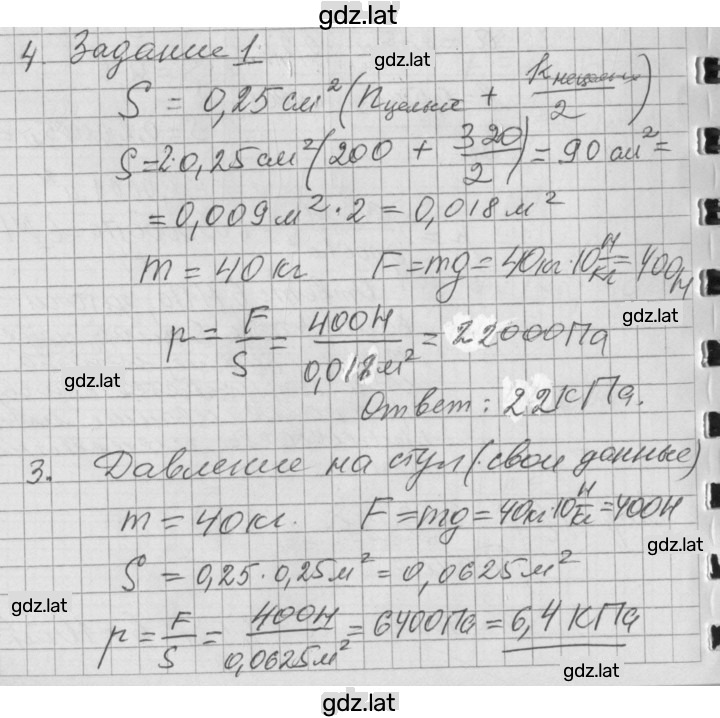 gdz.lat
4. Задание 1
gdz.lat
S = 0,25 см² (nцелые + kнецелых/2)
gdz.lat
S=2·0,25см²(200 + 320/2) = 90 см² =
= 0,009м²·2 = 0,018м²
gdz.lat
m = 40кг F=mg=40кг·10Н/кг=400Н
gdz.lat
p = F/S = 400Н/0,018м² = 22000Па
gdz.lat
Ответ: 22кПа.
gdz.lat
3. Давление на стул (свои данные)
m = 40кг. F=mg=40кг·10Н/кг=400Н
gdz.lat
S = 0,25·0,25м² = 0,0625м²
gdz.lat
p = F/S = 400Н/0,0625м² = 6400Па = 6,4 КПа
gdz.lat
gdz.lat